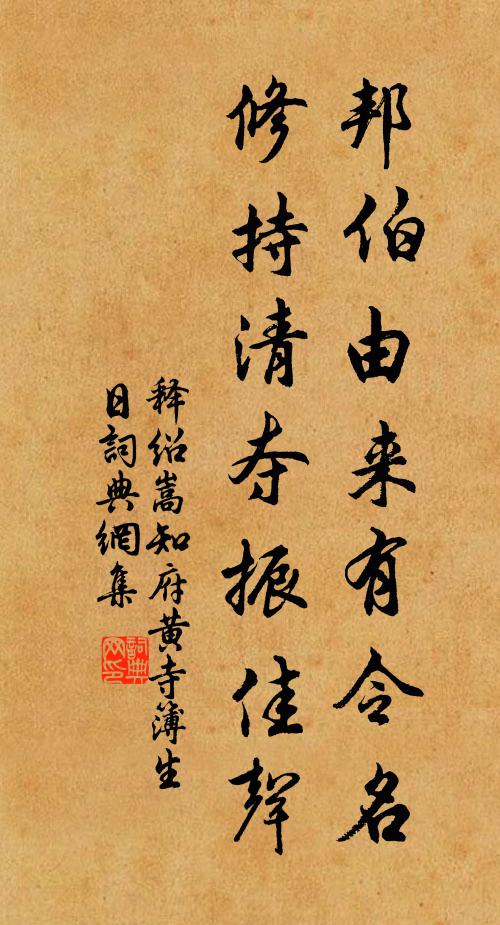 邦伯由来有令名
修持清夺振佳聲
释绍嵩知府黄寺簿生
日詞典網集
詞典网印